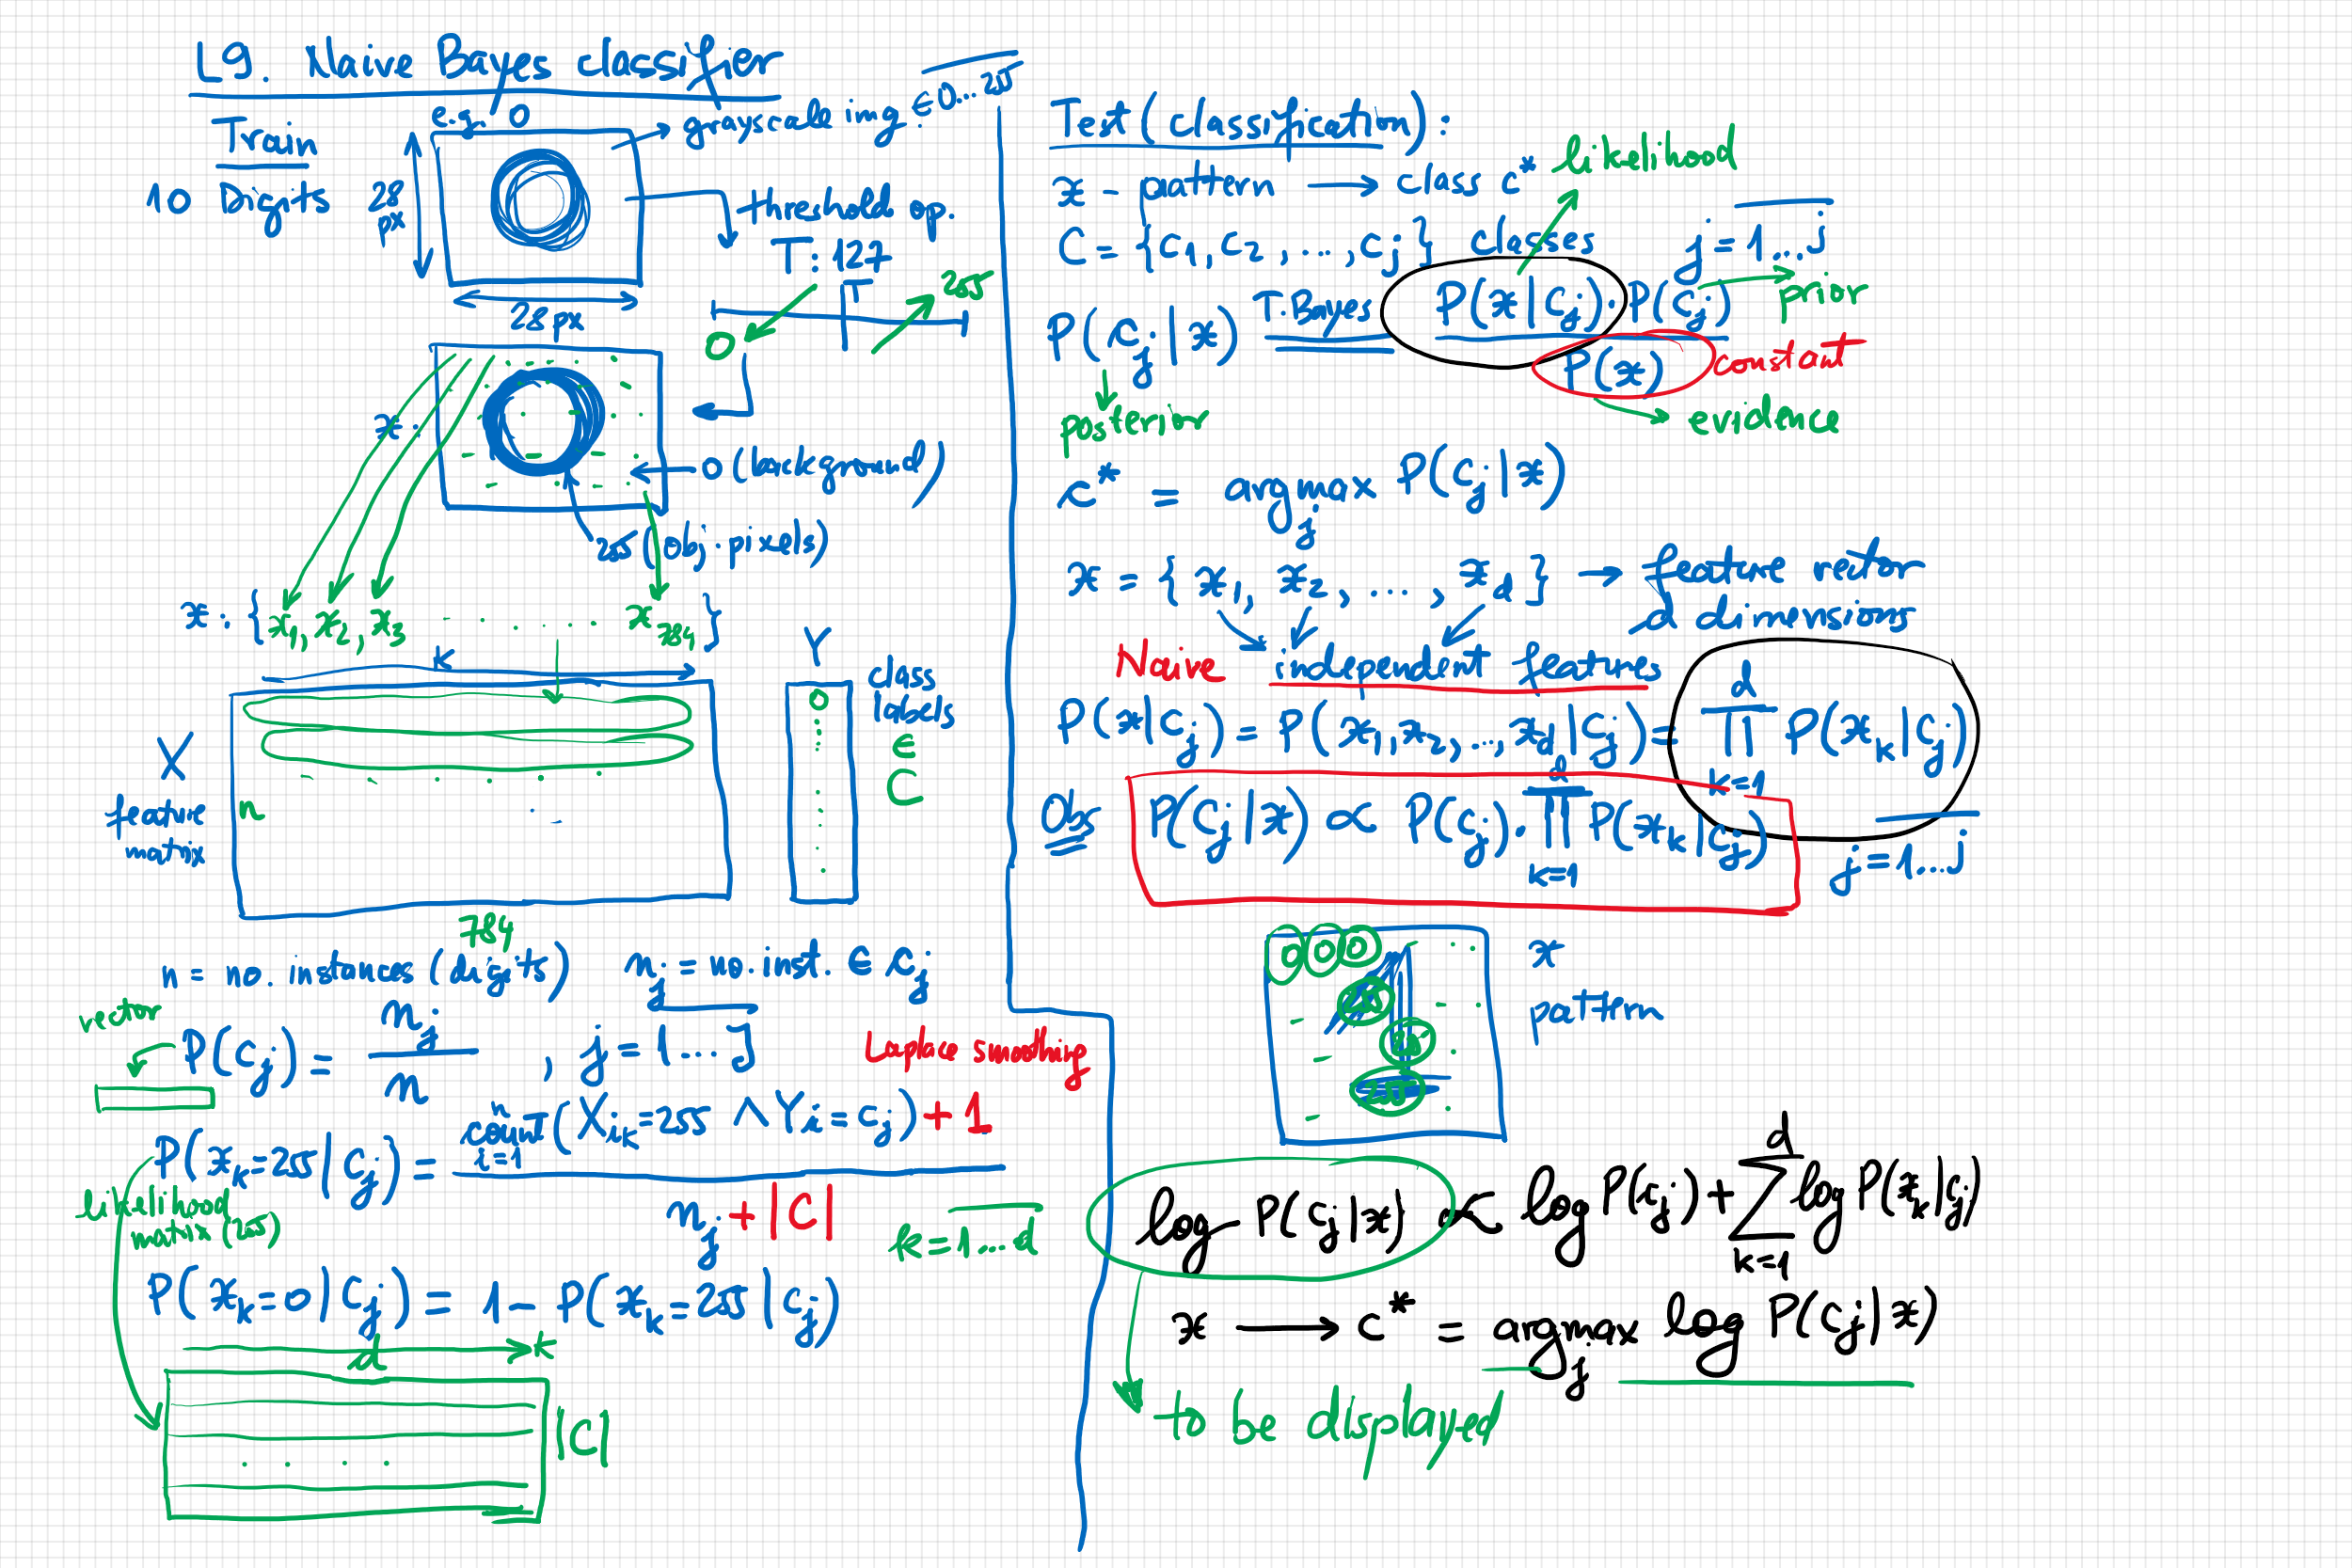 L9. Naive Bayes classifier
Train
10 Digits
e.g. 0
grayscale img. ∈ 0...255
28 px
28 px
threshold op.
T: 127
T
0
255
x:
0 (background)
255 (obj. pixels)
x: { x₁, x₂, x₃ . . . . . x₇₈₄ }
k
Y
class labels
∈ C
0
X
feature matrix
n
784
n = no. instances (digits)
n_j = no. inst. ∈ c_j
vector
P(c_j) = n_j / n , j = 1...J
Laplace smoothing
P(x_k=255 | c_j) = (count_{i=1}^{n} (X_ik=255 ∧ Y_i = c_j) + 1) / (n_j + |C|)
likelihood matrix (255)
k = 1...d
P(x_k=0 | c_j) = 1 - P(x_k=255 | c_j)
d
k
|C|
Test (classification):
x - pattern → class c*
likelihood
C = {c₁, c₂, ..., c_j} classes j = 1...j
P(c_j | x) T. Bayes = P(x | c_j) · P(c_j) / P(x)
prior
constant
posterior
evidence
c* = argmax_j P(c_j | x)
x = { x₁, x₂, ..., x_d } → feature vector
d dimensions
Naive independent features
P(x | c_j) = P(x₁, x₂, ..., x_d | c_j) = ∏_{k=1}^{d} P(x_k | c_j)
Obs P(c_j | x) ∝ P(c_j) · ∏_{k=1}^{d} P(x_k | c_j) j = 1...j
0 0 0
255
x
pattern
log P(c_j | x) ∝ log P(c_j) + ∑_{k=1}^{d} log P(x_k | c_j)
x → c* = argmax_j log P(c_j | x)
to be displayed